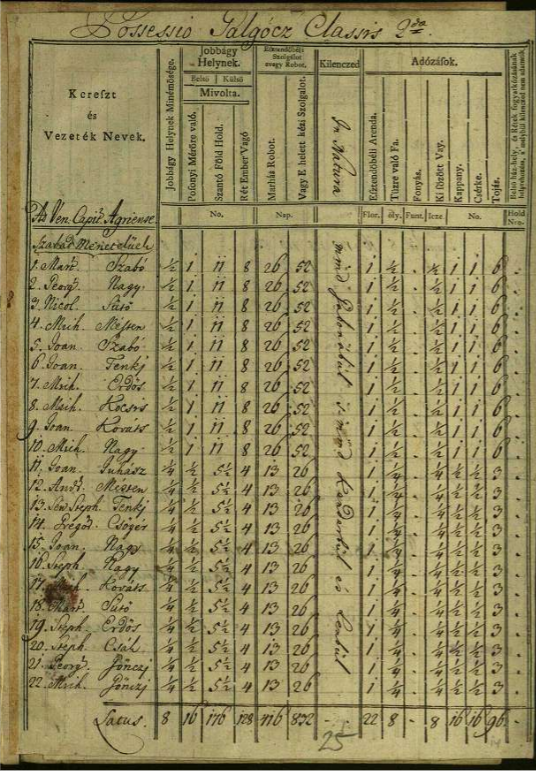 Possessio Galgócz Classis 2da.
Kereszt és Vezeték Nevek.
Jobbágy Helynek Minémősége.
Jobbágy Helynek.
Belső Külső
Mivolta.
Posonyi Mérőre való.
Szántó Föld Hold.
Rét Ember Vagó
Esztendőbéli Szolgálat avagy Robot.
Marhás Robot.
Vagy E helett kézi Szolgálot.
Kilenczed
In Natura
Adózások.
Esztendőbéli Arenda.
Tüzre való Fa.
Fonyás.
Ki főzött Vay.
Kappany.
Csirke.
Tojás.
No. Nap. Flor. öly. Funt. Icze No. Hold Nro.
Ax Ven. Capit. Agriense.
Szabad Menetelüek
1. Mart. Szabó ½ 1 11 8 26 52 1 ½ . ½ 1 1 6 .
2. Georg. Nagy ½ 1 11 8 26 52 1 ½ . ½ 1 1 6 .
3. Nicol. Sütő ½ 1 11 8 26 52 1 ½ . ½ 1 1 6 .
4. Mich. Mester ½ 1 11 8 26 52 1 ½ . ½ 1 1 6 .
5. Joan. Szabó ½ 1 11 8 26 52 1 ½ . ½ 1 1 6 .
6. Joan. Tenkj ½ 1 11 8 26 52 1 ½ . ½ 1 1 6 .
7. Mich. Erdős ½ 1 11 8 26 52 1 ½ . ½ 1 1 6 .
8. Mich. Kocsis ½ 1 11 8 26 52 1 ½ . ½ 1 1 6 .
9. Joan Kováts ½ 1 11 8 26 52 1 ½ . ½ 1 1 6 .
10. Mich. Nagy ½ 1 11 8 26 52 1 ½ . ½ 1 1 6 .
11. Joan. Juhasz ¼ ½ 5½ 4 13 26 1 ¼ . ¼ ½ ½ 3 .
12. Andr. Mester ¼ ½ 5½ 4 13 26 1 ¼ . ¼ ½ ½ 3 .
13. Sen. Steph. Tenkj ¼ ½ 5½ 4 13 26 1 ¼ . ¼ ½ ½ 3 .
14. Gregor. ¼ ½ 5½ 4 13 26 1 ¼ . ¼ ½ ½ 3 .
15. Joan. ¼ ½ 5½ 4 13 26 1 ¼ . ¼ ½ ½ 3 .
16. Steph. Nagy ¼ ½ 5½ 4 13 26 1 ¼ . ¼ ½ ½ 3 .
17. Kováts ¼ ½ 5½ 4 13 26 1 ¼ . ¼ ½ ½ 3 .
18. Mart. Sütő ¼ ½ 5½ 4 13 26 1 ¼ . ¼ ½ ½ 3 .
19. Steph. Erdős ¼ ½ 5½ 4 13 26 1 ¼ . ¼ ½ ½ 3 .
20. Steph. ¼ ½ 5½ 4 13 26 1 ¼ . ¼ ½ ½ 3 .
21. Georg. Gönczj ¼ ½ 5½ 4 13 26 1 ¼ . ¼ ½ ½ 3 .
22. Mich. Gönczj ¼ ½ 5½ 4 13 26 1 ¼ . ¼ ½ ½ 3 .
Latus. 8 16 176 128 416 832 - 22 8 . 8 16 16 96 .
25